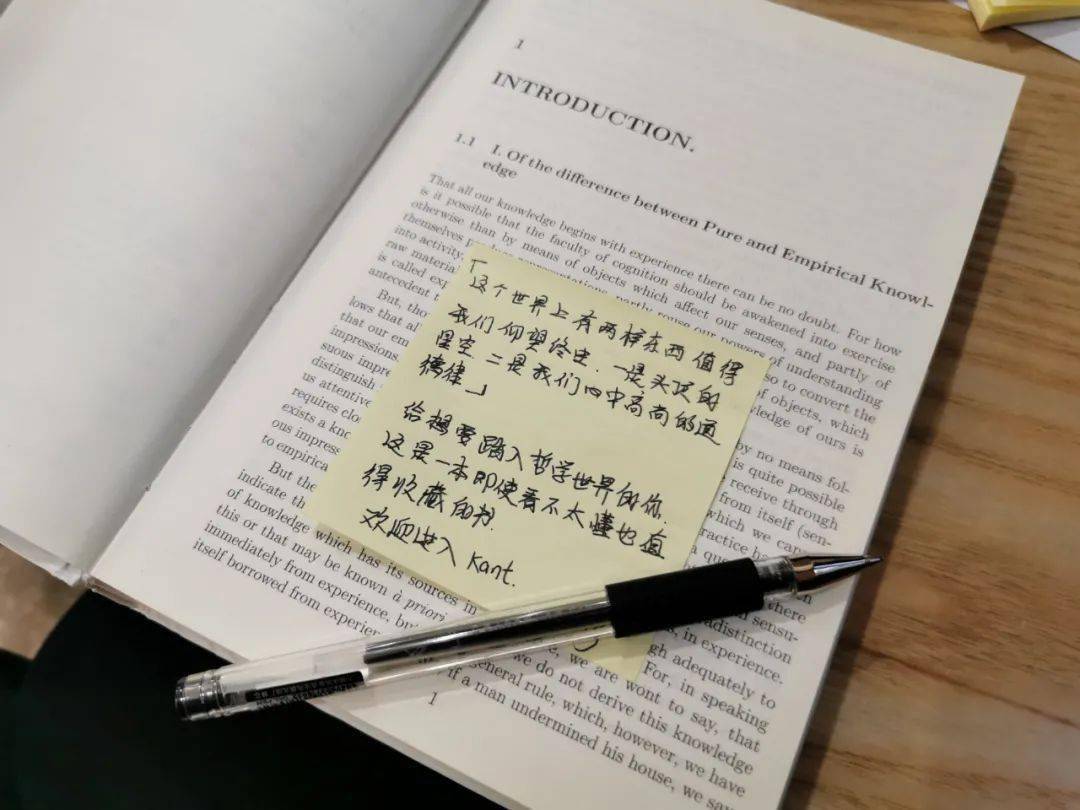 1
INTRODUCTION.
1.1 I. Of the difference between Pure and Empirical Knowl-
edge
That all our knowledge begins with experience there can be no doubt. For how
is it possible that the faculty of cognition should be awakened into exercise
otherwise than by means of objects which affect our senses, and partly of
themselves partly rouse our powers of understanding
into activity, so to convert the
raw material of objects, which
is called exp ledge of ours is
antecedent t
But, thou by no means fol-
lows that al is quite possible
that our em receive through
suous impre from itself (sen-
impressions, which we can
distinguish ractice ha
us attentive
requires clo
exists a kno
ous impress
to empirica
But the sensu-
indicate th radistinction
of knowledge which has its sources in , in experience.
this or that may be known à priori gh adequately to
immediately from experience, bu For, in speaking
itself borrowed from experien we are wont to say, that
we do not derive this knowledge
general rule, which, however, we have
if a man undermined his house, we say
1
「
这个世界上有两样东西值得
我们仰望终生.一是头顶的
星空 二是我们心中高尚的道
德律」
给想要踏入哲学世界的你.
这是一本即使看不太懂也值
得收藏的书.
欢迎进入 Kant.